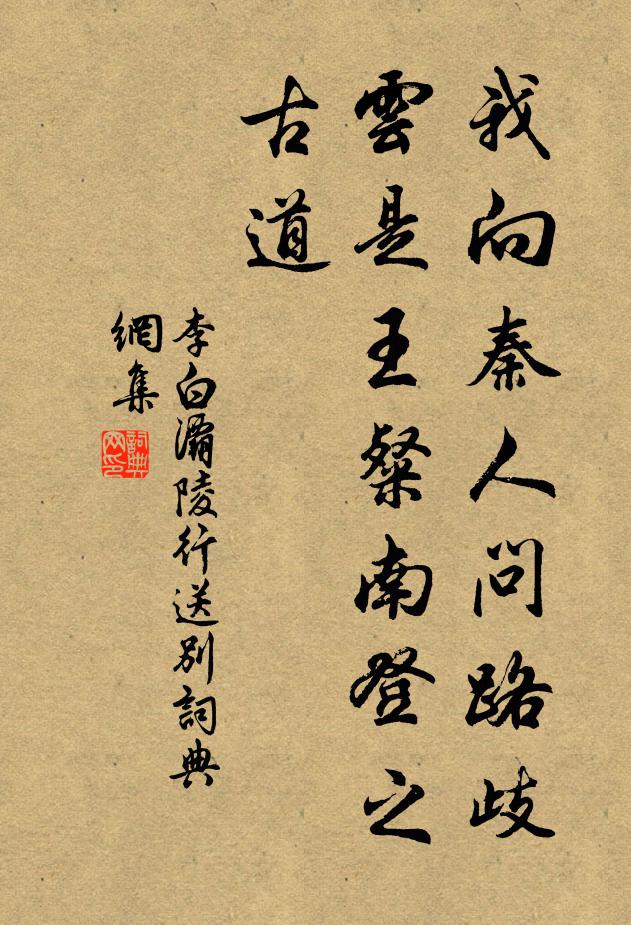 我向秦人問路歧
雲是王粲南登之
古道
李白灞陵行送別詞典
網集
詞典
网印